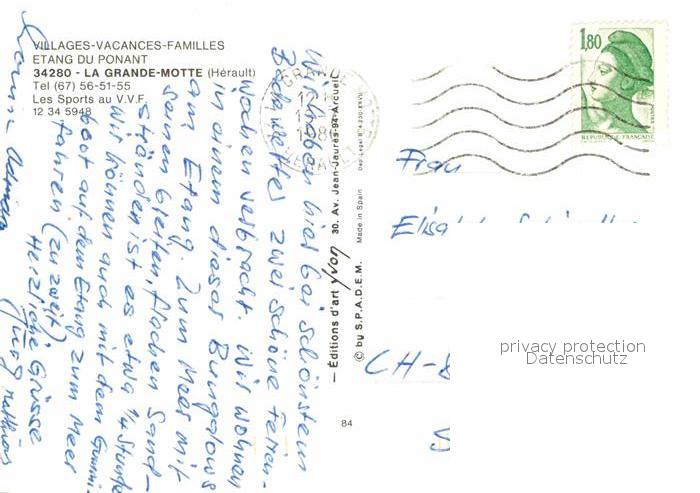 VILLAGES-VACANCES-FAMILLES
ETANG DU PONANT
34280 - LA GRANDE-MOTTE (Hérault)
Tel (67) 56-51-55
Les Sports au V.V.F.
12 34 5948
Wir haben hier bei schönstem
Badewetter zwei schöne Ferien-
wochen verbracht. Wir wohnen
in einem dieser Bungalows
am Etang. Zum Meer mit
seinen breiten, flachen Sand-
stränden ist es etwa 1/4 Stunde
Wir können auch mit dem Gummi-
boot auf dem Etang zum Meer
fahren (zu zweit)
Herzliche Grüsse
Jürg Matthias
— Éditions d'art yvon 30. Av. Jean-Jaurès-94-Arcueil
© by S.P.A.D.E.M. Made in Spain
84
1,80
REPUBLIQUE FRANÇAISE
POSTES
Frau
CH-8
privacy protection
Datenschutz